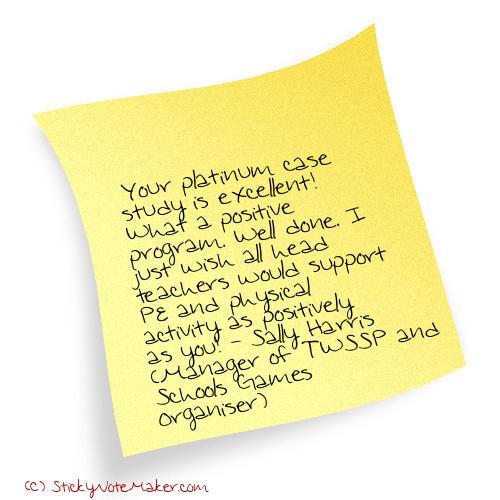 Your platinum case
study is excellent!
What a positive
program. Well done. I
just wish all head
teachers would support
PE and physical
activity as positively
as you! - Sally Harris
(Manager of TWSSP and
Schools Games
organiser)
(c) StickyNoteMaker.com